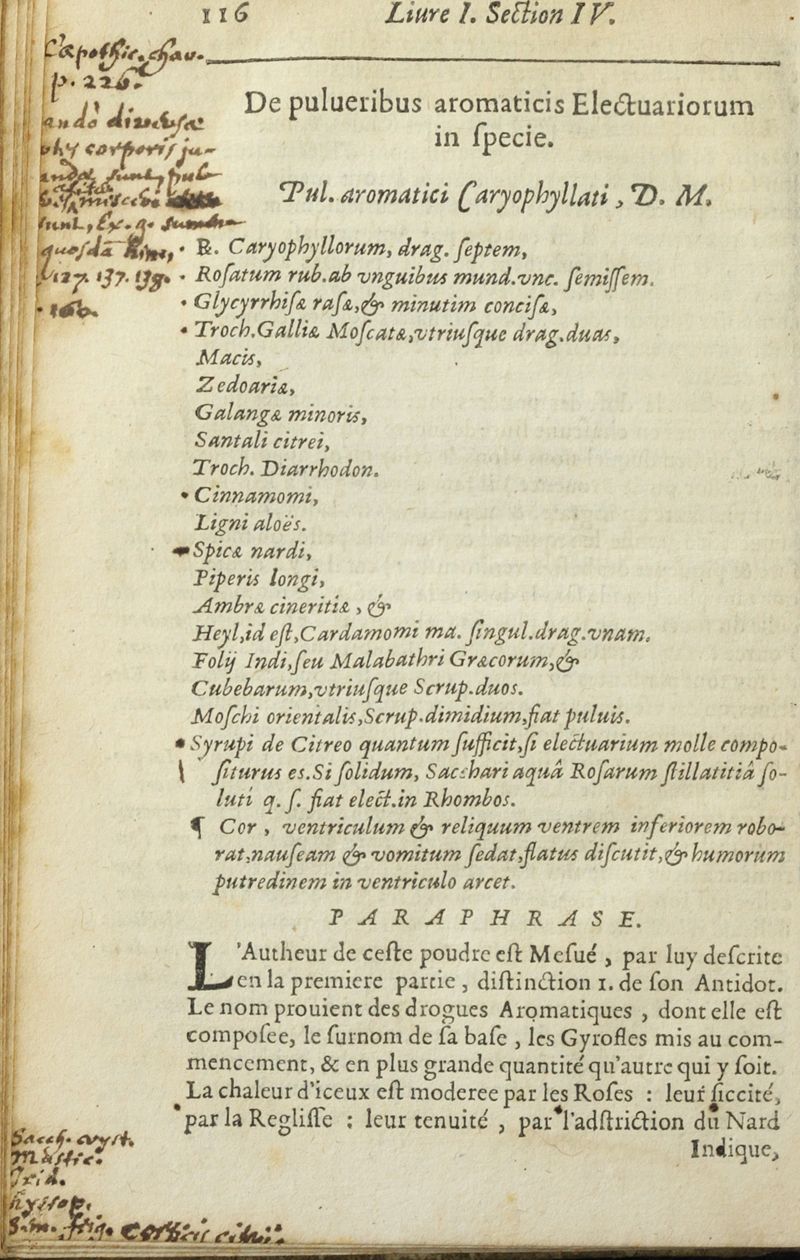 116 Liure I. Section IV.
p. 226.
De pulueribus aromaticis Electuariorum
in ſpecie.
Pul. aromatici Caryophyllati, D. M.
℞. Caryophyllorum, drag. ſeptem,
Roſatum rub. ab vnguibus mund. vnc. ſemiſſem.
Glycyrrhiſæ raſæ, & minutim conciſæ,
Troch. Galliæ Moſcatæ, vtriuſque drag. duas,
Macis,
Zedoariæ,
Galangæ minoris,
Santali citrei,
Troch. Diarrhodon.
Cinnamomi,
Ligni aloës.
Spicæ nardi,
Piperis longi,
Ambræ cineritiæ, &
Heyl, id eſt, Cardamomi ma. ſingul. drag. vnam.
Folij Indi, ſeu Malabathri Græcorum, &
Cubebarum, vtriuſque Scrup. duos.
Moſchi orientalis, Scrup. dimidium, fiat puluis.
Syrupi de Citreo quantum ſufficit, ſi electuarium molle compo-
ſiturus es. Si ſolidum, Sacchari aquâ Roſarum ſtillatitiâ ſo-
luti q. ſ. fiat elect. in Rhombos.
¶ Cor, ventriculum & reliquum ventrem inferiorem robo-
rat, nauſeam & vomitum ſedat, flatus diſcutit, & humorum
putredinem in ventriculo arcet.
PARAPHRASE.
L'Autheur de ceſte poudre eſt Meſué, par luy deſcrite
en la premiere partie, diſtinction 1. de ſon Antidot.
Le nom prouient des drogues Aromatiques, dont elle eſt
compoſee, le ſurnom de ſa baſe, les Gyrofles mis au com-
mencement, & en plus grande quantité qu'autre qui y ſoit.
La chaleur d'iceux eſt moderee par les Roſes : leur ſiccité,
par la Regliſſe : leur tenuité, par l'adſtriction du Nard
Indique,
hyssop.